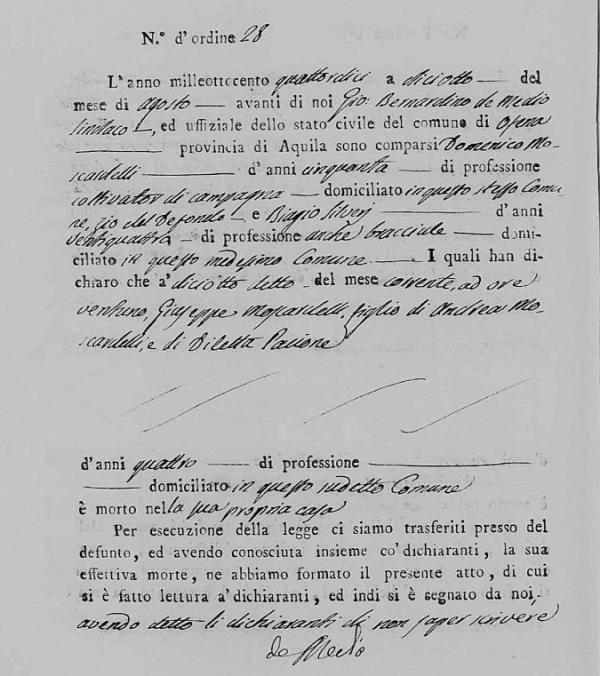 N.º d'ordine 28
L'anno milleottocento quattordici a diciotto del
mese di Agosto avanti di noi Gio: Bernardino de Medio
Sindaco, ed uffiziale dello stato civile del comune di Ofena
provincia di Aquila sono comparsi Domenico Mo-
scardelli d'anni cinquanta di professione
coltivator di campagna domiciliato in questo stesso Comu-
ne, zio del Defonto e Biagio Silverj d'anni
ventiquattro di professione anche bracciale domi-
ciliato in questo medesimo Comune I quali han di-
chiaro che a' diciotto detto del mese corrente, ad ore
ventuno, Giuseppe Moscardelli figlio di Andrea Mo-
scardelli, e di Diletta Pacione
d'anni quattro di professione
domiciliato in questo sudetto Comune
è morto nella sua propria casa
Per esecuzione della legge ci siamo trasferiti presso del
defunto, ed avendo conosciuta insieme co' dichiaranti, la sua
effettiva morte, ne abbiamo formato il presente atto, di cui
si è fatto lettura a' dichiaranti, ed indi si è segnato da noi,
avendo detto li dichiaranti di non saper scrivere
de Medio